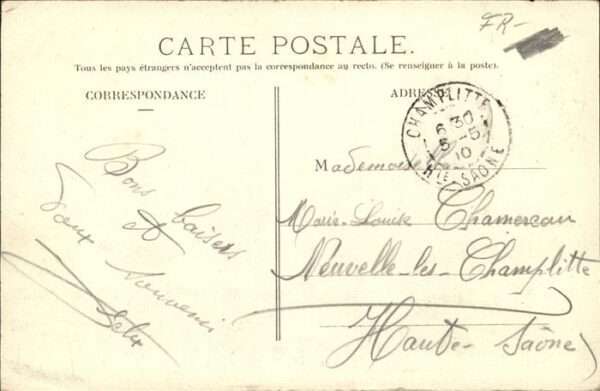 FR-
CARTE POSTALE.
Tous les pays étrangers n'acceptent pas la correspondance au recto. (Se renseigner à la poste).
CORRESPONDANCE
ADRESSE
CHAMPLITTE
6 30
5-5
10
Hte SAONE
Bons baisers
et
doux souvenir
Mademoiselle
Marie-Louise Chamereau
Neuvelle-les-Champlitte
Haute-Saône